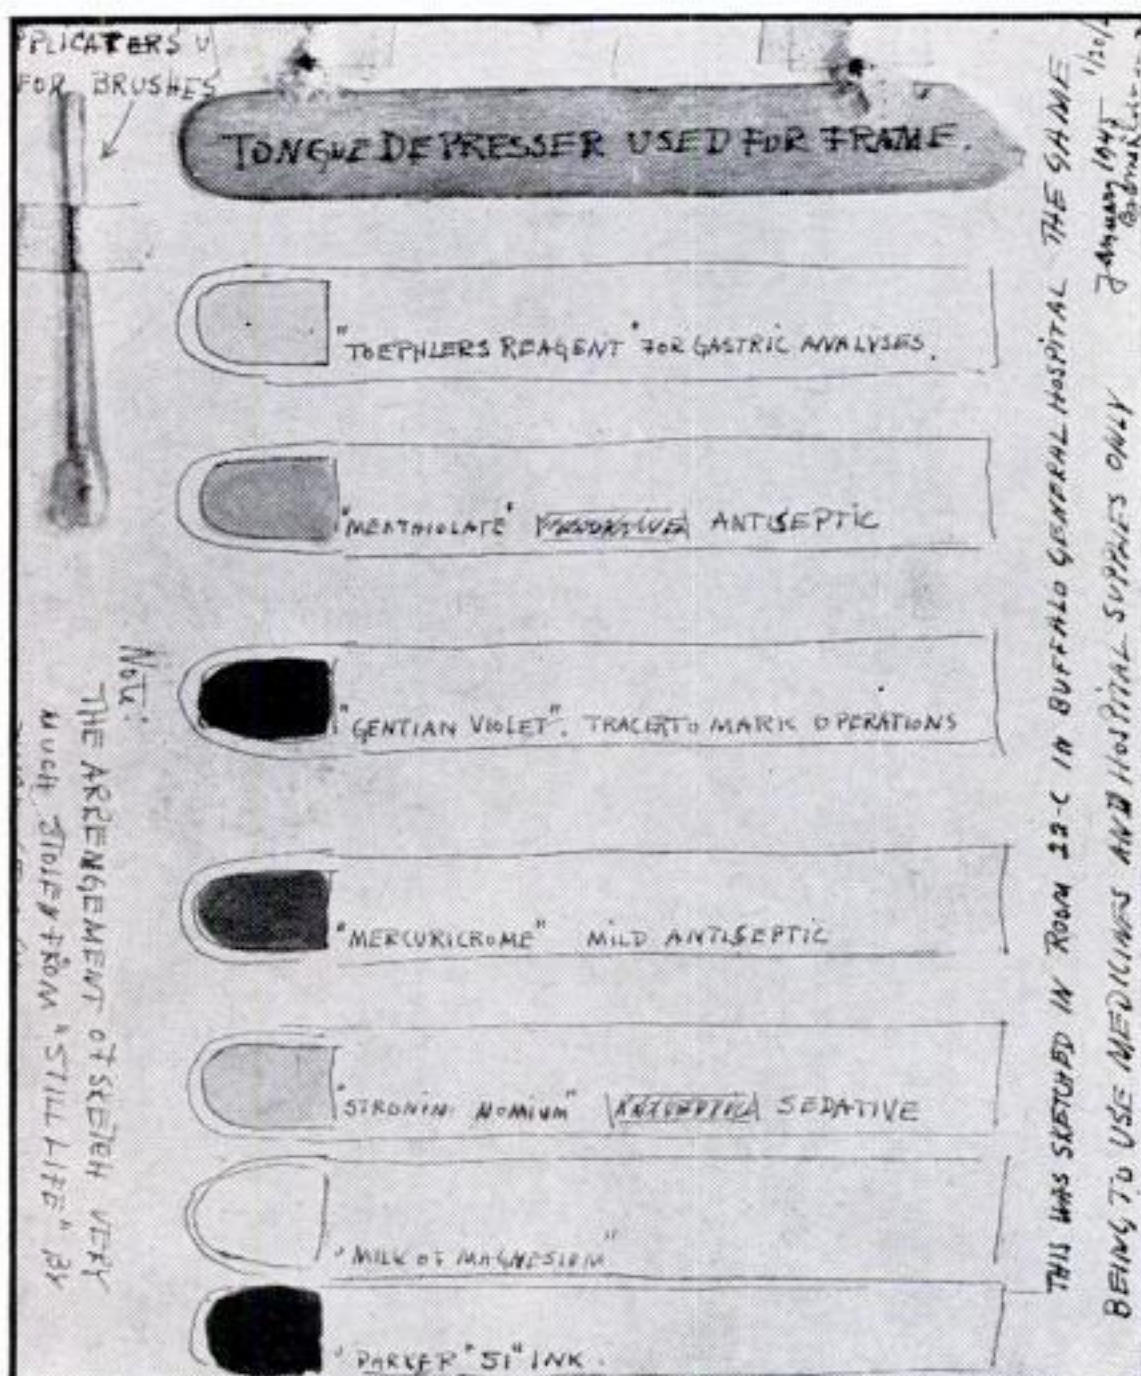 PPLICATERS U
FOR BRUSHES
TONGUE DEPRESSER USED FOR FRAME.
"TOEPHLERS REAGENT" FOR GASTRIC ANALYSES.
"MERTHIOLATE" ANTISEPTIC
"GENTIAN VIOLET". TRACER TO MARK OPERATIONS
"MERCURICROME" MILD ANTISEPTIC
"STRONIM: NOMIUM" SEDATIVE
"MILK OF MAGNESIUM"
"PARKER "51" INK.
Note:
THE ARRENGEMENT OF SKETCH VERY
MUCH STOLEN FROM "STILL LIFE" BY
THIS WAS SKETCHED IN ROOM 22-C IN BUFFALO GENERAL HOSPITAL THE GAME
BEING TO USE MEDICINES AND HOSPITAL SUPPLIES ONLY
January 1945
1/20/